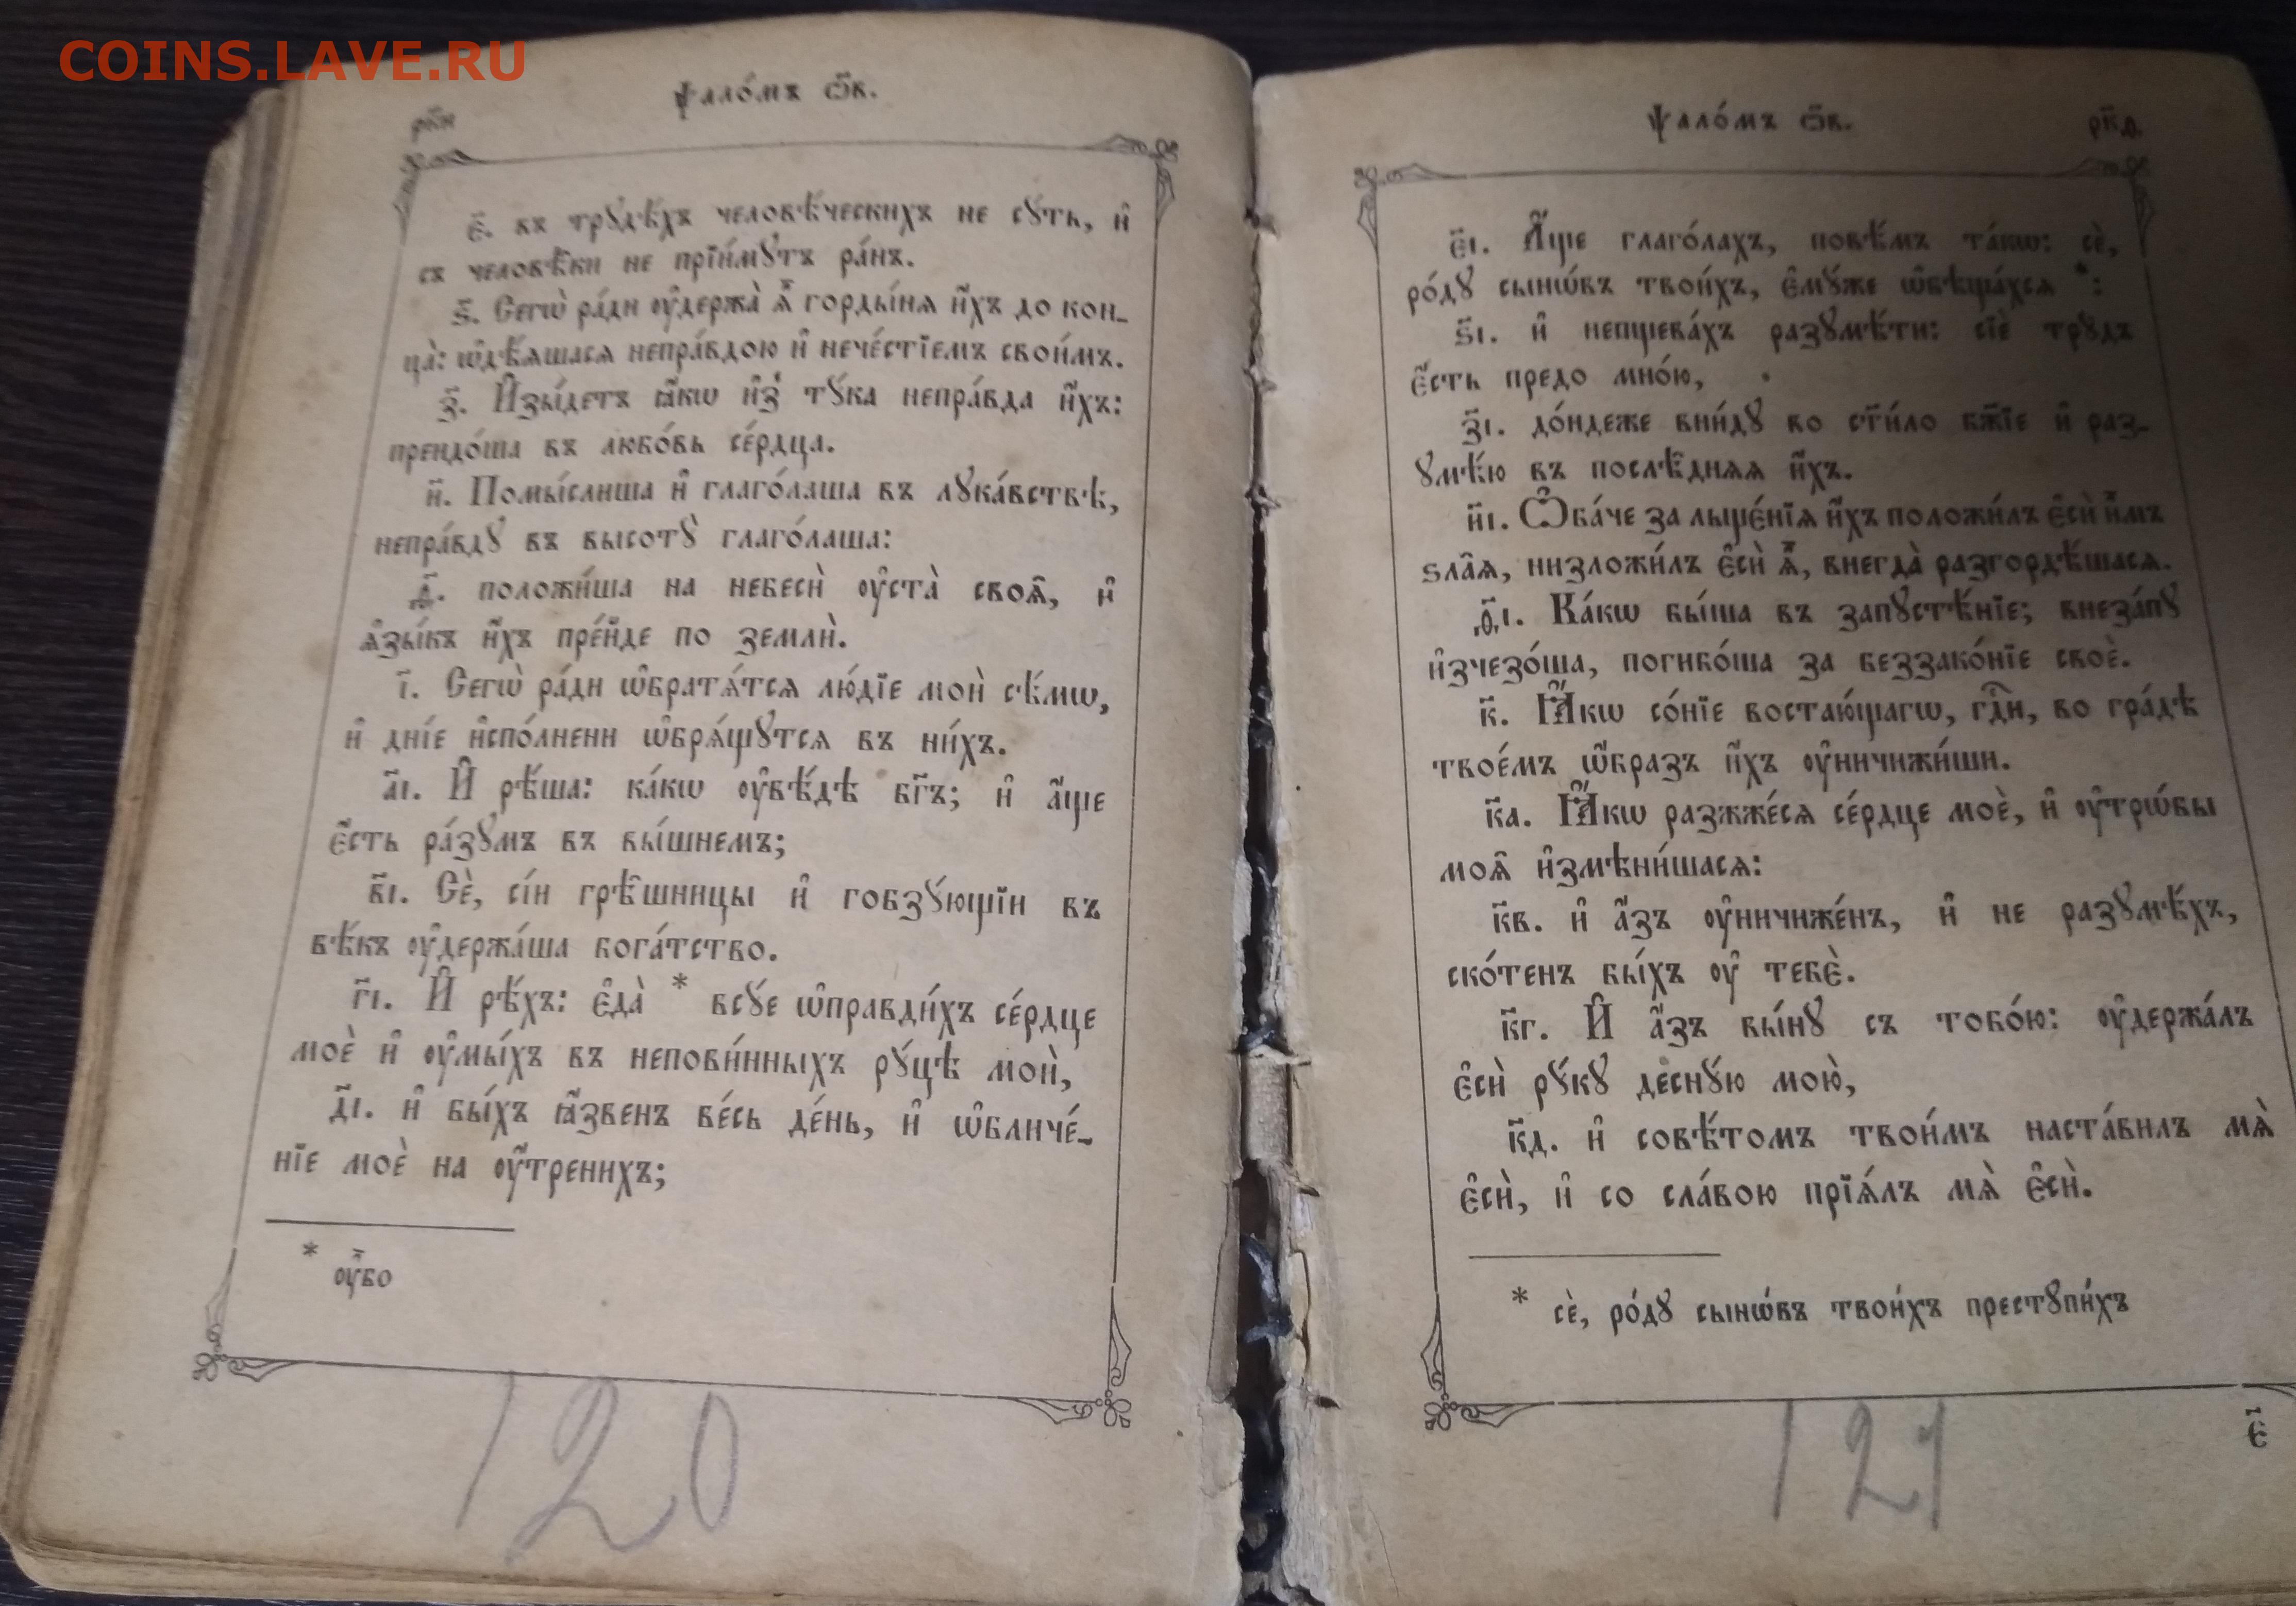 COINS.LAVE.RU
рк҃и
ѱало́мъ ѻ҃в.
є҃. въ трꙋдѣ́хъ человѣ́ческихъ не сꙋ́ть, и҆
съ человѣ̑ки не прїи́мꙋтъ ра́нъ.
ѕ҃. Сегѡ̀ ра́ди ᲂу҆держа̀ ѧ҆̀ горды́нѧ и҆́хъ до кон-
ца̀: ѡ҆дѣ́ѧшасѧ непра́вдою и҆ нече́стїемъ свои́мъ.
з҃. И҆зы́детъ ꙗ҆́кѡ и҆з̾ тꙋ́ка непра́вда и҆́хъ:
преидо́ша въ любо́вь се́рдца.
и҃. Помы́слиша и҆ глаго́лаша въ лꙋка́вствѣ,
непра́вдꙋ въ высотꙋ̀ глаго́лаша:
ѳ҃. положи́ша на небесѝ ᲂу҆ста̀ своѧ̑, и҆
ѧ҆зы́къ и҆́хъ пре́йде по землѝ.
і҃. Сегѡ̀ ра́ди ѡ҆братѧ́тсѧ лю́дїе моѝ сѣ́мѡ,
и҆ дні́е и҆спо́лнени ѡ҆брѧ́щꙋтсѧ въ ни́хъ.
а҃і. И҆ рѣ́ша: ка́кѡ ᲂу҆вѣ́дѣ бг҃ъ; и҆ а҆́ще
є҆́сть ра́зꙋмъ въ вы́шнемъ;
в҃і. Сѐ, сі́и грѣ̑шницы и҆ гобзꙋ́ющїи въ
вѣ́къ ᲂу҆держа́ша бога́тство.
г҃і. И҆ рѣ́хъ: є҆да̀ * всꙋ́е ѡ҆правди́хъ се́рдце
моѐ и҆ ᲂу҆мы́хъ въ непови́нныхъ рꙋ́цѣ моѝ,
д҃і. и҆ бы́хъ ꙗ҆́звенъ ве́сь де́нь, и҆ ѡ҆бличе́-
нїе моѐ на ᲂу҆́тренихъ;
* ᲂу҆̀бо
120
ѱало́мъ ѻ҃в.
рк҃ѳ.
є҃і. А҆́ще глаго́лахъ, повѣ́мъ та́кѡ: сѐ,
ро́дꙋ сынѡ́въ твои́хъ, є҆мꙋ́же ѡ҆бѣща́хсѧ *:
ѕ҃і. и҆ непщева́хъ разꙋмѣ́ти: сїѐ трꙋ́дъ
є҆́сть предо мно́ю,
з҃і. до́ндеже вни́дꙋ во ст҃и́ло бж҃їе и҆ раз-
ꙋмѣ́ю въ послѣ̑днѧѧ и҆́хъ.
и҃і. Ѻ҆ба́че за льщє́нїѧ и҆́хъ положи́лъ є҆сѝ и҆̀мъ
ѕла̑ѧ, низложи́лъ є҆сѝ ѧ҆̀, внегда̀ разгордѣ́шасѧ.
ѳ҃і. Ка́кѡ бы́ша въ запꙋстѣ́нїе; внеза́пꙋ
и҆зчезо́ша, погибо́ша за беззако́нїе своѐ.
к҃. Ꙗ҆́кѡ со́нїе востаю́щагѡ, гдⷭ҇и, во гра́дѣ
твое́мъ ѡ҆́бразъ и҆́хъ ᲂу҆ничижи́ши.
к҃а. Ꙗ҆́кѡ разжже́сѧ се́рдце моѐ, и҆ ᲂу҆трѡ́бы
моѧ̑ и҆змѣни́шасѧ:
к҃в. и҆ а҆́зъ ᲂу҆ничиже́нъ, и҆ не разꙋмѣ́хъ,
ско́тенъ бы́хъ ᲂу҆ тебє̀.
к҃г. И҆ а҆́зъ вы́нꙋ съ тобо́ю: ᲂу҆держа́лъ
є҆сѝ рꙋ́кꙋ деснꙋ́ю мою̀,
к҃д. и҆ совѣ́томъ твои́мъ наста́вилъ мѧ̀
є҆сѝ, и҆ со сла́вою прїѧ́лъ мѧ̀ є҆сѝ.
* сѐ, ро́дꙋ сынѡ́въ твои́хъ престꙋпи́хъ
121
є҃